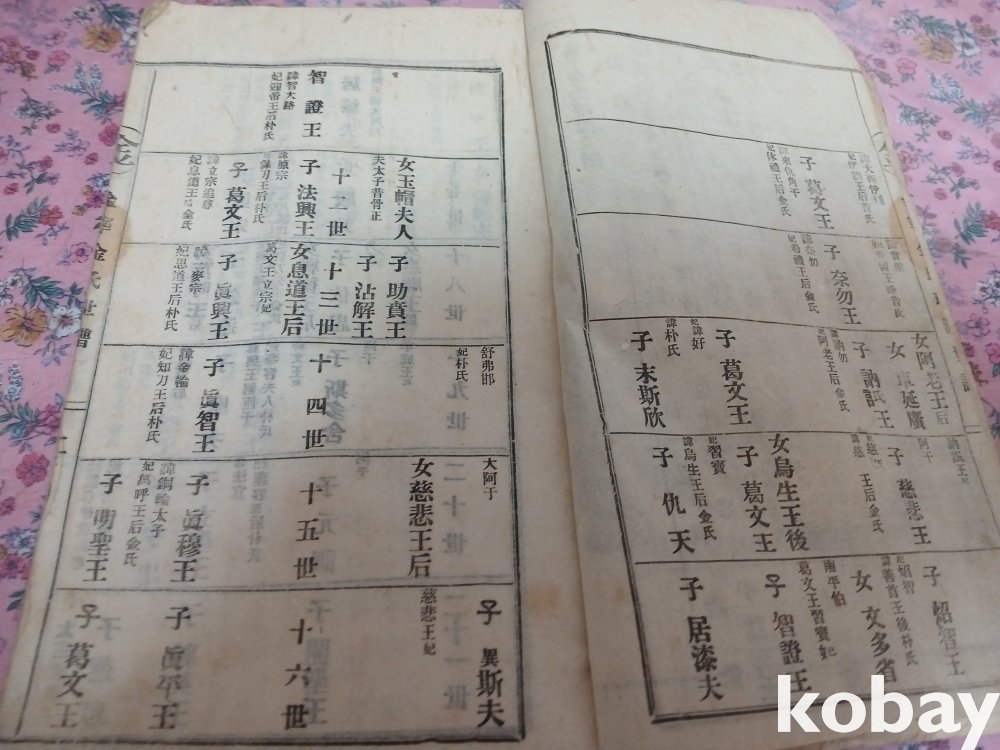 子 葛文王
諱末仇角干
妃休禮王后金氏
子 奈勿王
諱奈勿
妃希禮王后金氏
女阿老王后
子 訥祗王
諱訥勿
妃阿老王后金氏
子 葛文王
諱好
妃
諱朴氏
子 末斯欣
阿干
子 慈悲王
諱慈
女烏生王後
子 葛文王
妃習寶
諱烏生王后金氏
子 仇天
子 炤智王
諱炤智
妃善首王後朴氏
女 女多省
南平伯
葛文王習寶妃
子 智證王
子 居漆夫
金氏世譜
智證王
諱智大路
妃迎帝王后朴氏
女玉帽夫人
夫太子香骨正
十二世
子 法興王
諱原宗
子 葛文王
諱立宗追尊
妃息道王后金氏
子 助賁王
子 沾解王
十三世
女息道王后
葛文王立宗妃
子 眞興王
妃思道王后朴氏
舒弗邯
妃朴氏
十四世
子 眞智王
諱金輪
妃知刀王后朴氏
大阿干
女慈悲王后
十五世
子 眞穆王
諱銅輪太子
妃萬呼王后金氏
子 明聖王
慈悲王妃
子 異斯夫
十六世
子 眞平王
子 葛文王
kobay